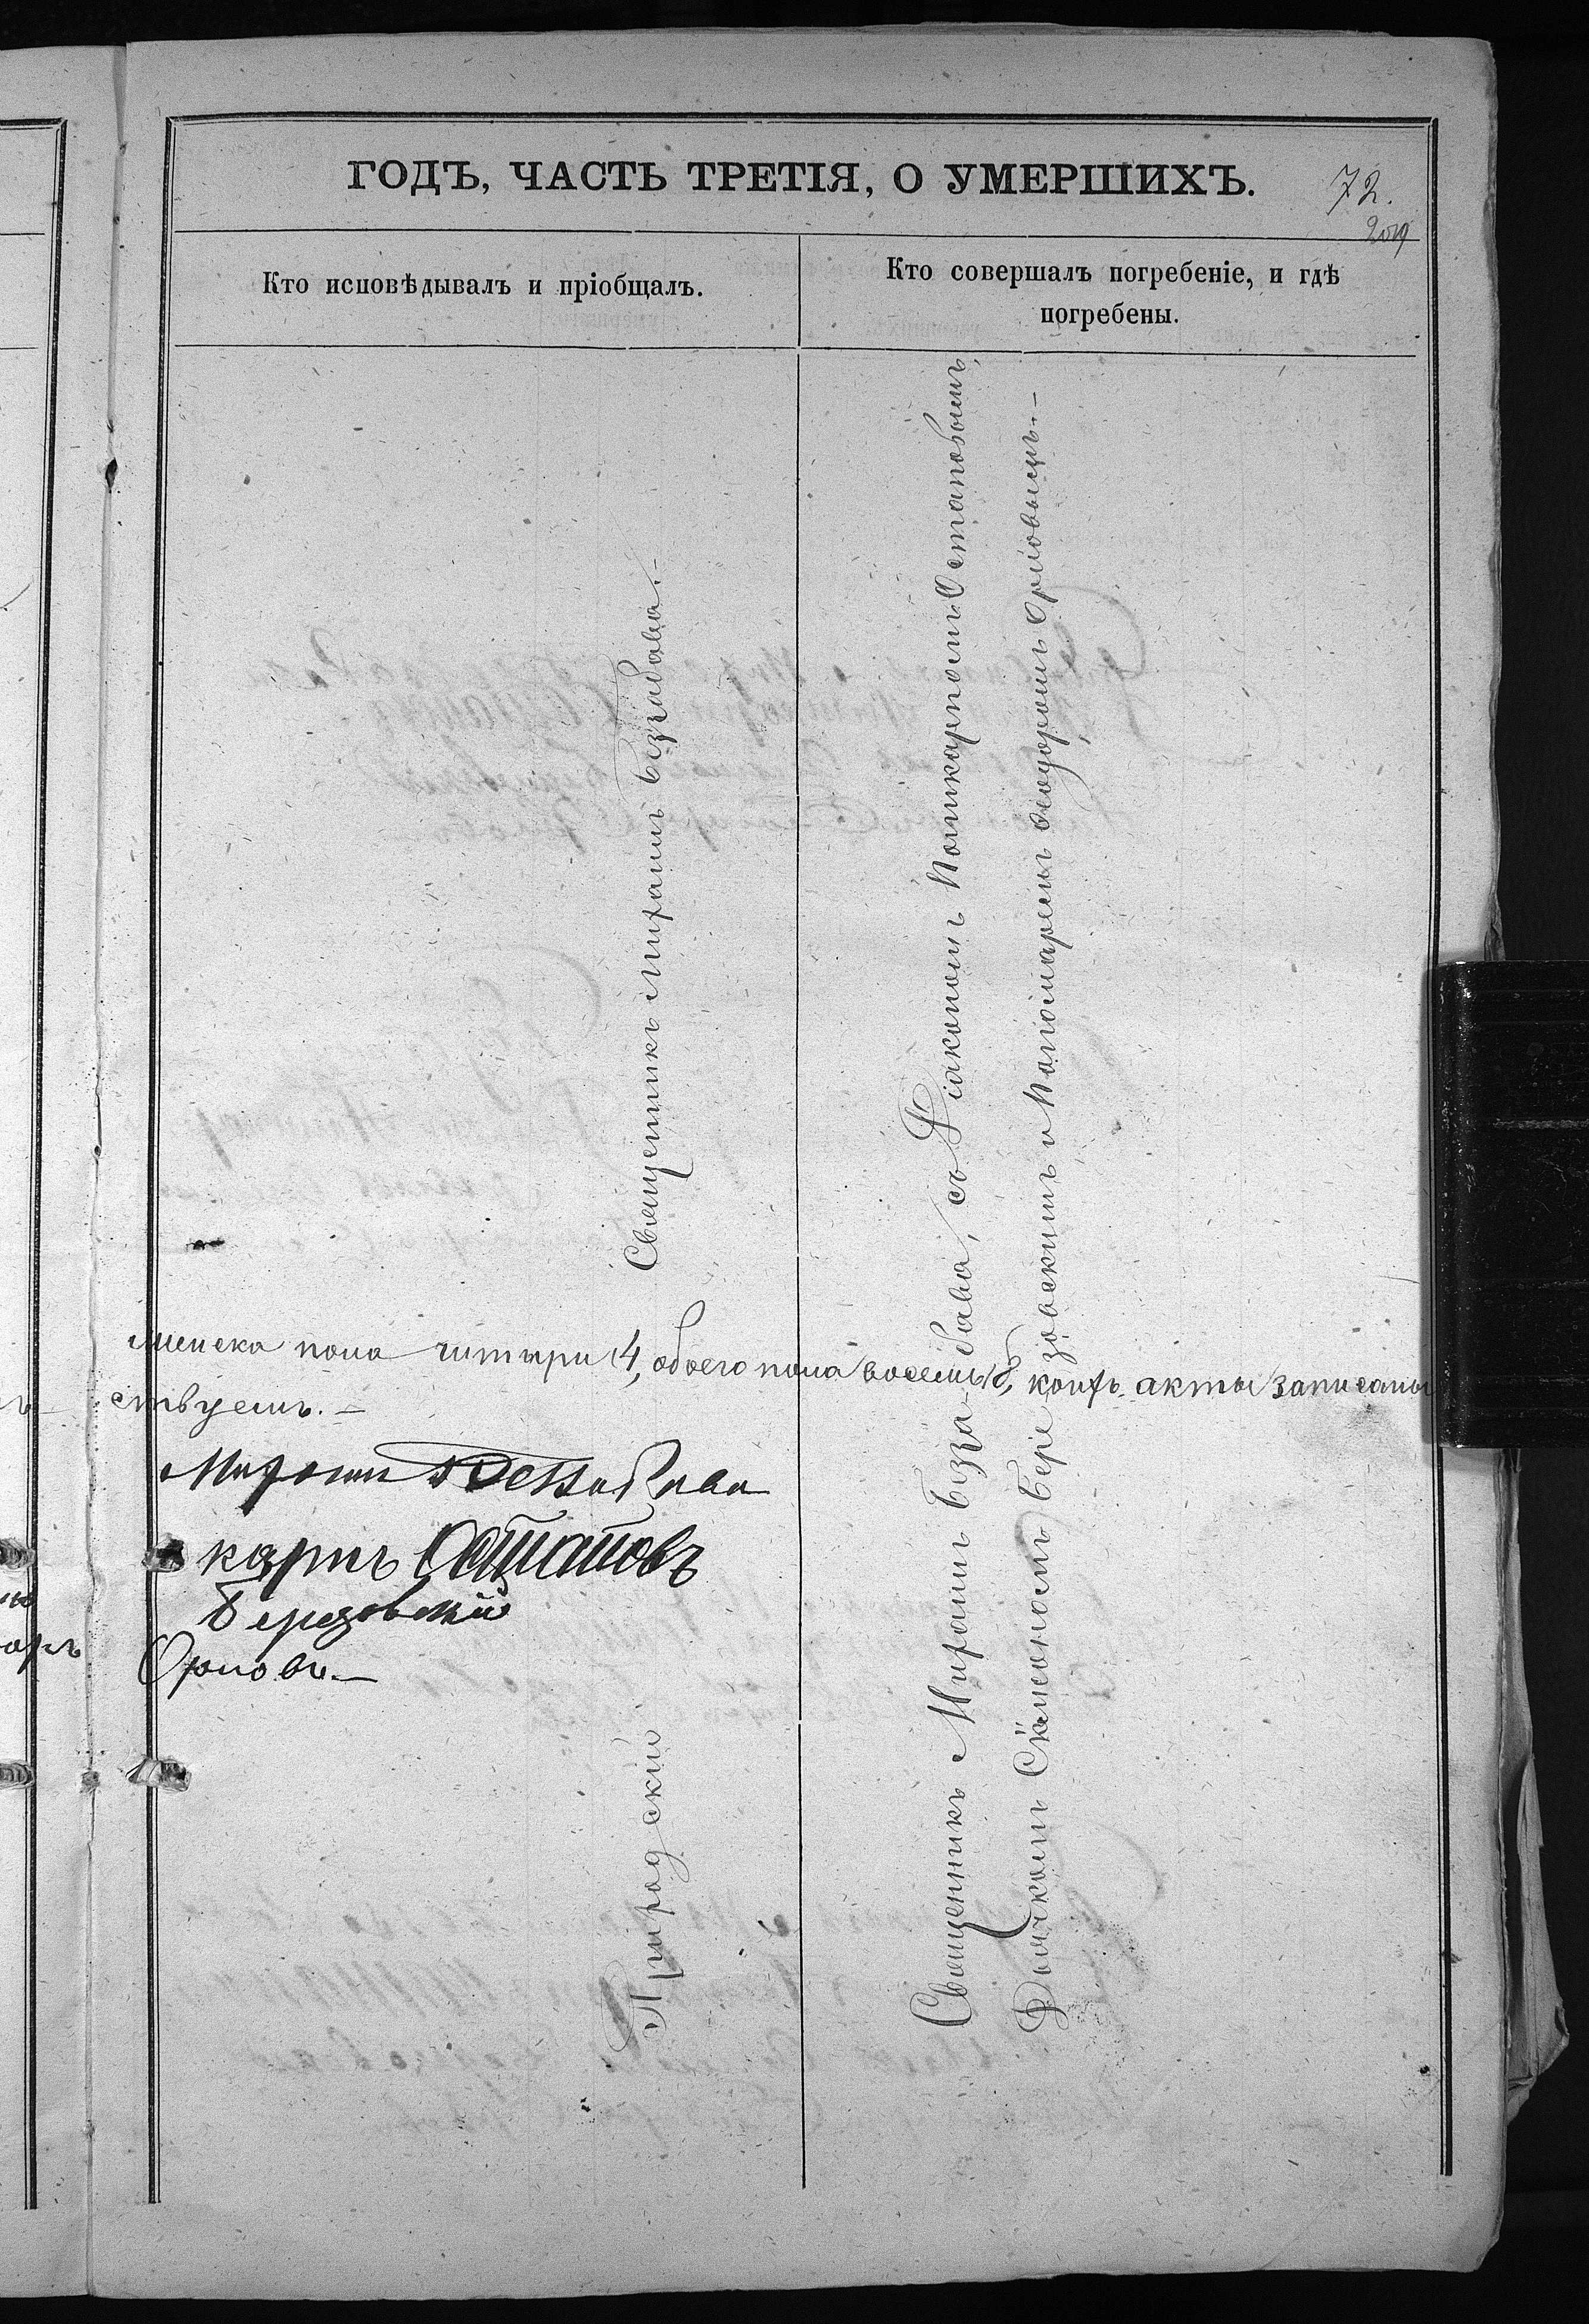 ГОДЪ, ЧАСТЬ ТРЕТІЯ, О УМЕРШИХЪ.
72.
Кто исповѣдывалъ и пріобщалъ.
Кто совершалъ погребеніе, и гдѣ
погребены.
Священникъ Миронъ Беззабава.-
Приходскій
Священникъ Миронъ Беззабава, съ Діакономъ Поликарпомъ Остаповымъ,
Дьячкомъ Симеономъ Березовскимъ и Пономаремъ Ѳеодоромъ Орловымъ.-
менска пола читыри 4, обоего пола восемь 8, коихъ акты записаны
ствуемъ.-
Миронъ Беззабава
карпъ Остаповъ
Березовскій
Орловъ.-